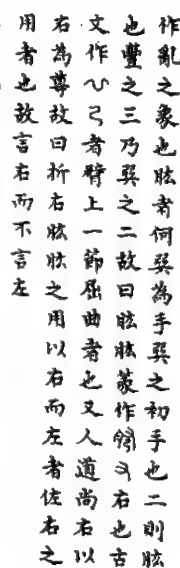 作亂之象也肱者何巽為手巽之初手也二則肱
也豐之三乃巽之二故曰肱肱篆作又右也古
文作者臂上一節屈曲者也又人道尚右以
右為尊故曰折右肱肱之用以右而左者佐右之
用者也故言右而不言左